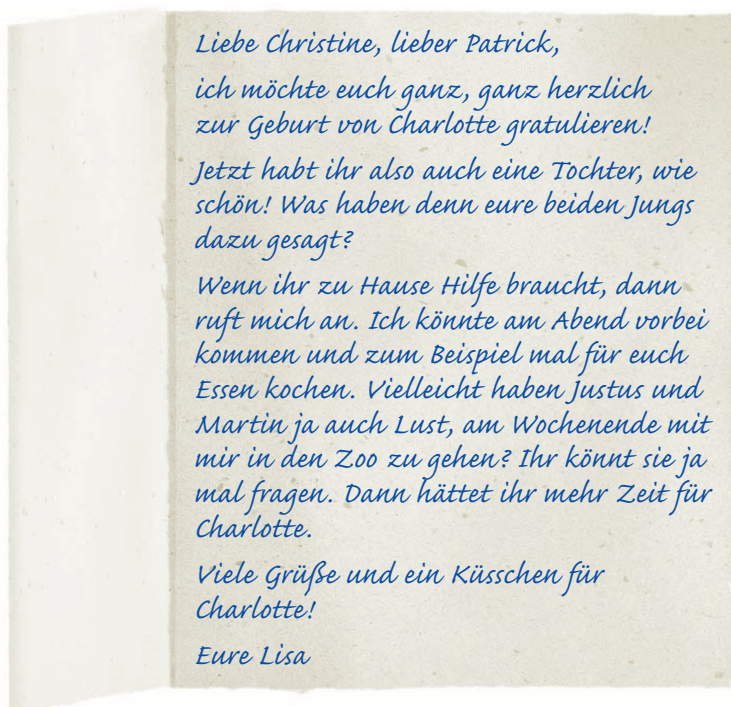 Liebe Christine, lieber Patrick,
ich möchte euch ganz, ganz herzlich
zur Geburt von Charlotte gratulieren!
Jetzt habt ihr also auch eine Tochter, wie
schön! Was haben denn eure beiden Jungs
dazu gesagt?
Wenn ihr zu Hause Hilfe braucht, dann
ruft mich an. Ich könnte am Abend vorbei
kommen und zum Beispiel mal für euch
Essen kochen. Vielleicht haben Justus und
Martin ja auch Lust, am Wochenende mit
mir in den Zoo zu gehen? Ihr könnt sie ja
mal fragen. Dann hättet ihr mehr Zeit für
Charlotte.
Viele Grüße und ein Küsschen für
Charlotte!
Eure Lisa